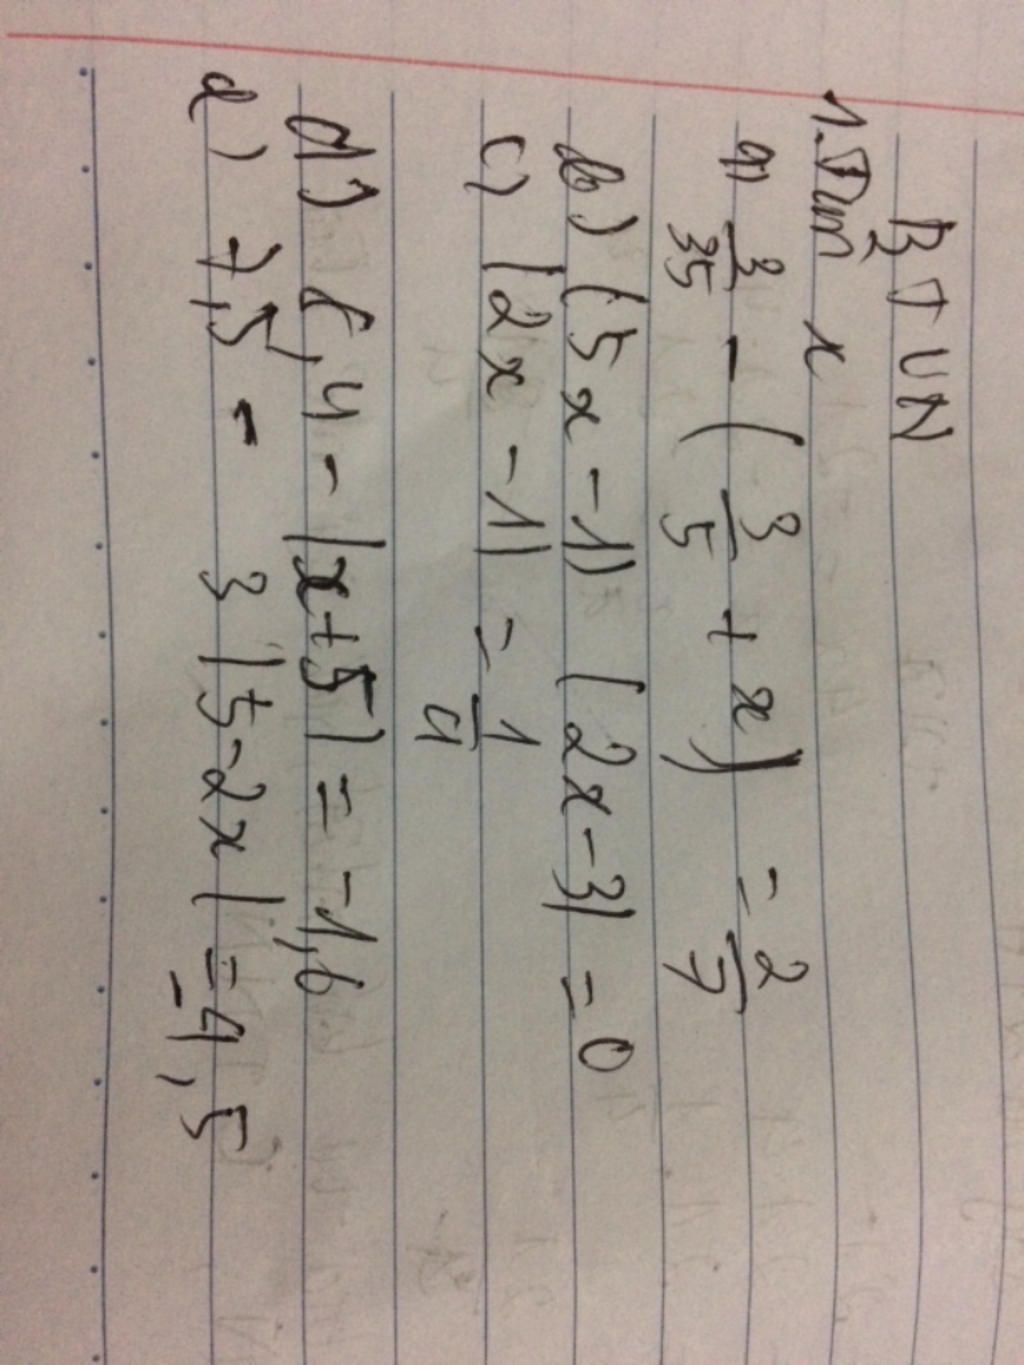 BTVN
1. Tìm x
a) 3/35 - (3/5 + x) = 2/7
b) (5x - 1) (2x - 3) = 0
c) |2x - 1| = 1/4
d) 6,4 - |x + 5| = -1,6
e) 7,5 - 3|5 - 2x| = -4,5